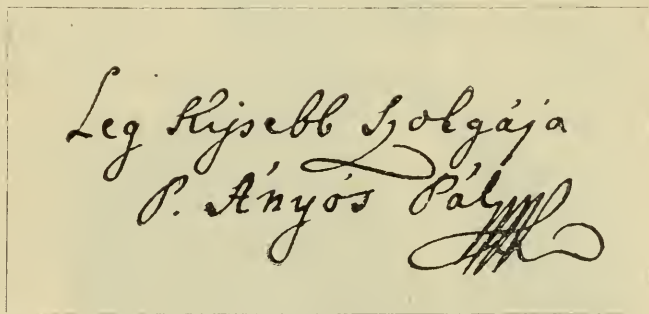 Leg Kissebb Szolgája
P. Ányós Pál